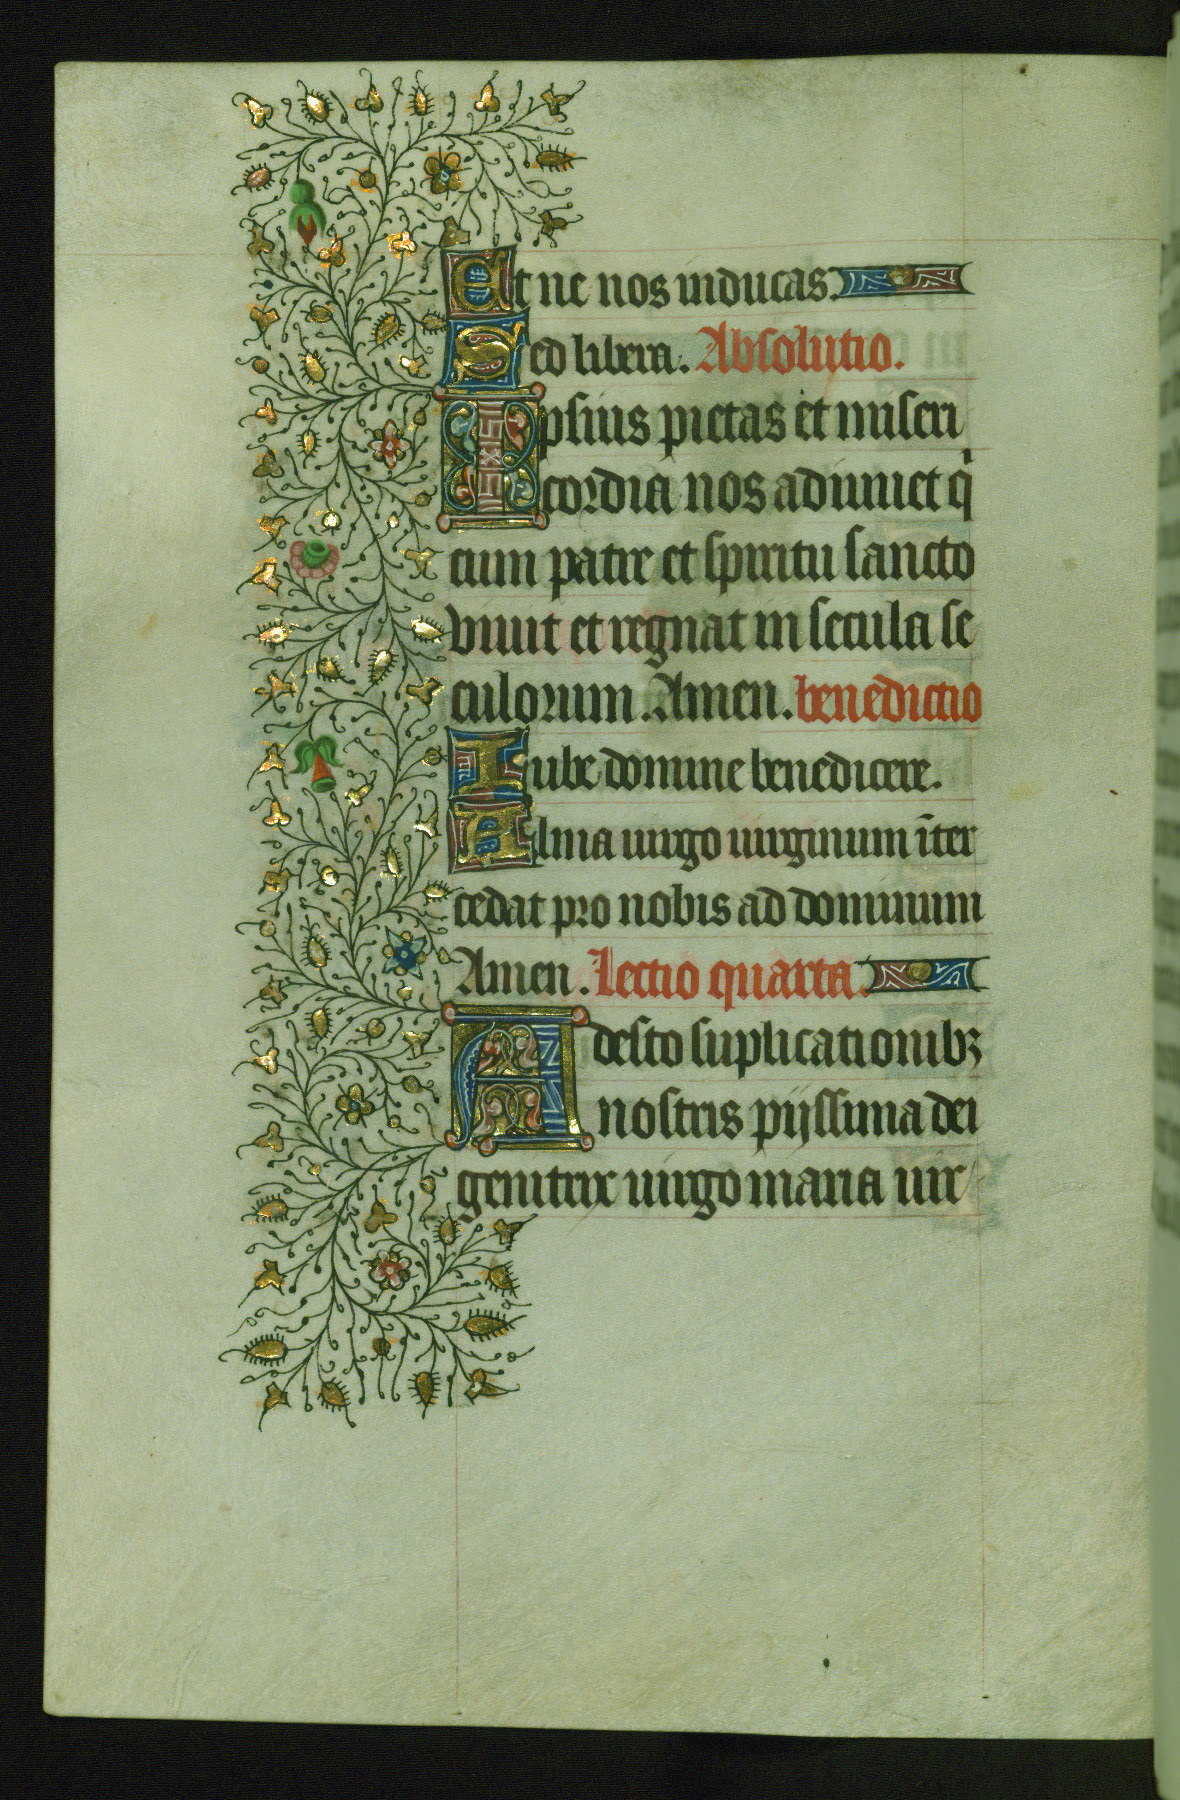 Et ne nos inducas.
Sed libera. Absolutio.
Ipsius pietas et miseri
cordia nos adiuuet q̄
cum patre et spiritu sancto
viuit et regnat in secula se
culorum. Amen. benedictio
Iube domine benedicere.
Alma uirgo uirginum īter
cedat pro nobis ad dominum
Amen. Lectio quarta.
Adesto suplicationibꝫ
nostris pijssima dei
genitrix uirgo maria uir